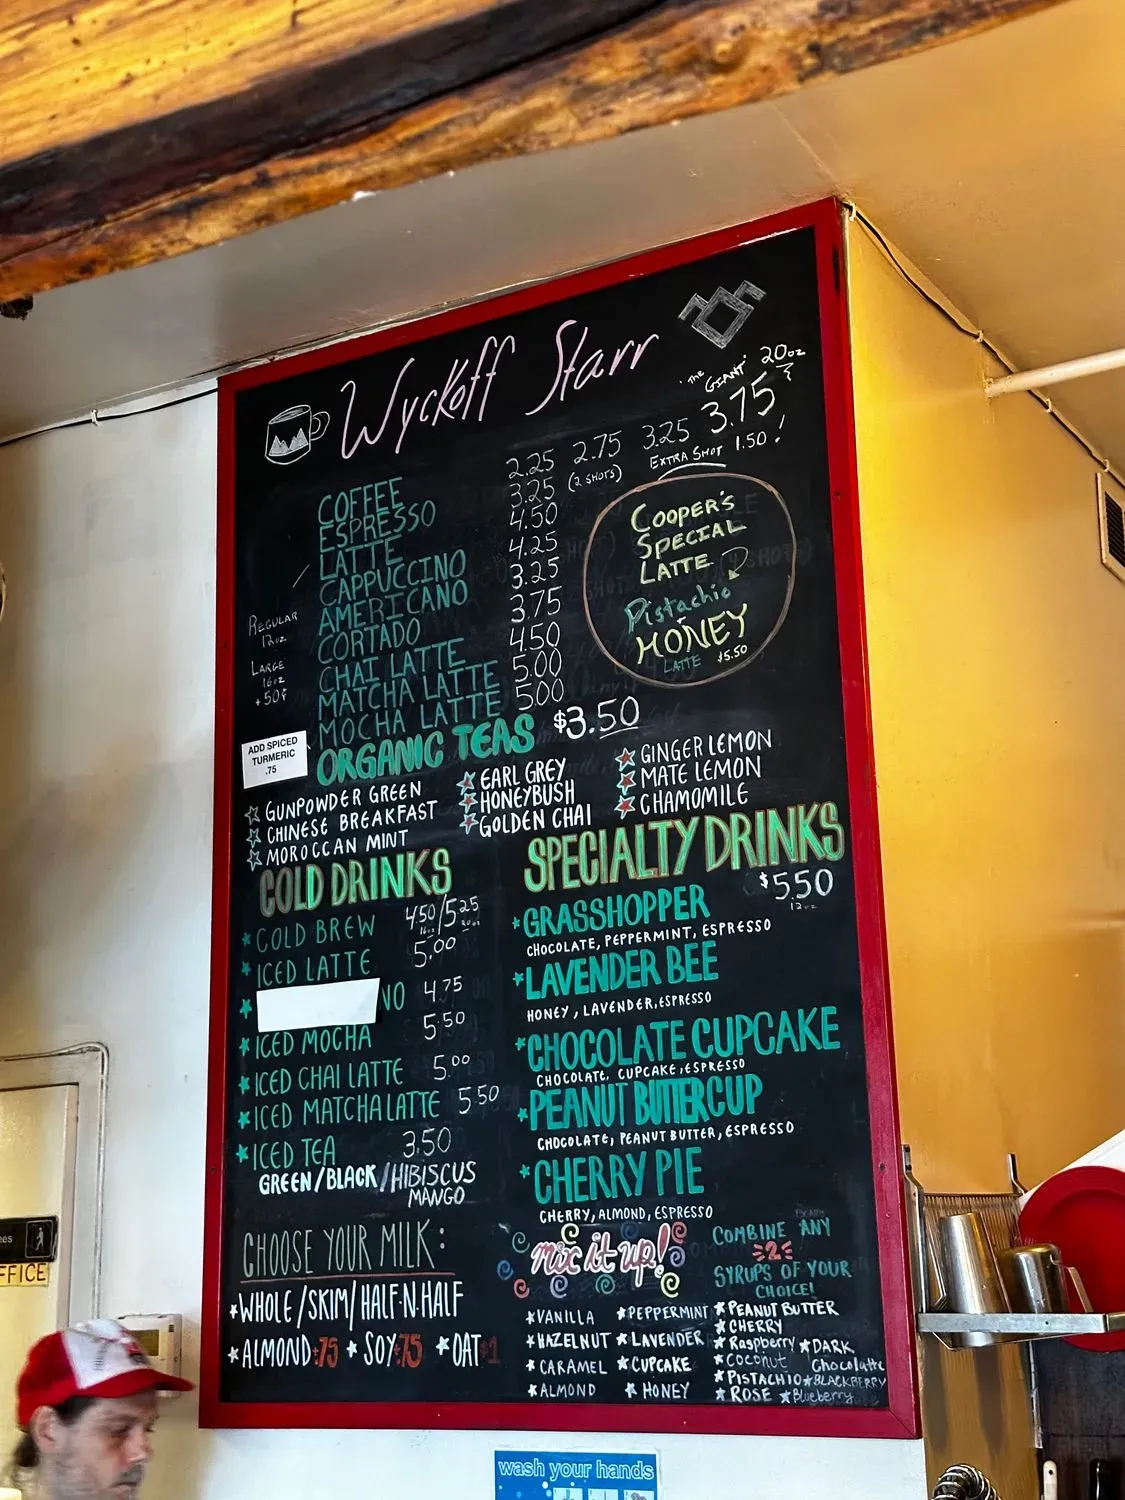 Wyckoff Starr
"THE GIANT" 20oz
COFFEE 2.25 2.75 3.25 3.75
ESPRESSO 3.25 (2 SHOTS) EXTRA SHOT 1.50!
LATTE 4.50
CAPPUCCINO 4.25
AMERICANO 3.25
CORTADO 3.75
CHAI LATTE 4.50
MATCHA LATTE 5.00
MOCHA LATTE 5.00
REGULAR
12oz
LARGE
16oz
+50¢
COOPER'S
SPECIAL
LATTE
Pistachio
HONEY
LATTE $5.50
ADD SPICED
TURMERIC
.75
ORGANIC TEAS $3.50
GUNPOWDER GREEN
CHINESE BREAKFAST
MOROCCAN MINT
EARL GREY
HONEYBUSH
GOLDEN CHAI
GINGER LEMON
MATE LEMON
CHAMOMILE
COLD DRINKS
COLD BREW 4.50/5.25
16oz 20oz
ICED LATTE 5.00
NO 4.75
ICED MOCHA 5.50
ICED CHAI LATTE 5.00
ICED MATCHA LATTE 5.50
ICED TEA 3.50
GREEN/BLACK/HIBISCUS
MANGO
SPECIALTY DRINKS
$5.50
12oz
GRASSHOPPER
CHOCOLATE, PEPPERMINT, ESPRESSO
LAVENDER BEE
HONEY, LAVENDER, ESPRESSO
CHOCOLATE CUPCAKE
CHOCOLATE, CUPCAKE, ESPRESSO
PEANUT BUTTERCUP
CHOCOLATE, PEANUT BUTTER, ESPRESSO
CHERRY PIE
CHERRY, ALMOND, ESPRESSO
CHOOSE YOUR MILK:
WHOLE/SKIM/HALF·N·HALF
ALMOND+75 SOY+75 OAT+$1
mix it up!
COMBINE ANY
2
SYRUPS OF YOUR
CHOICE!
VANILLA
HAZELNUT
CARAMEL
ALMOND
PEPPERMINT
LAVENDER
CUPCAKE
HONEY
PEANUT BUTTER
CHERRY
Raspberry DARK
Coconut Chocolate
PISTACHIO BLACKBERRY
ROSE Blueberry
ees
FFICE
wash your hands